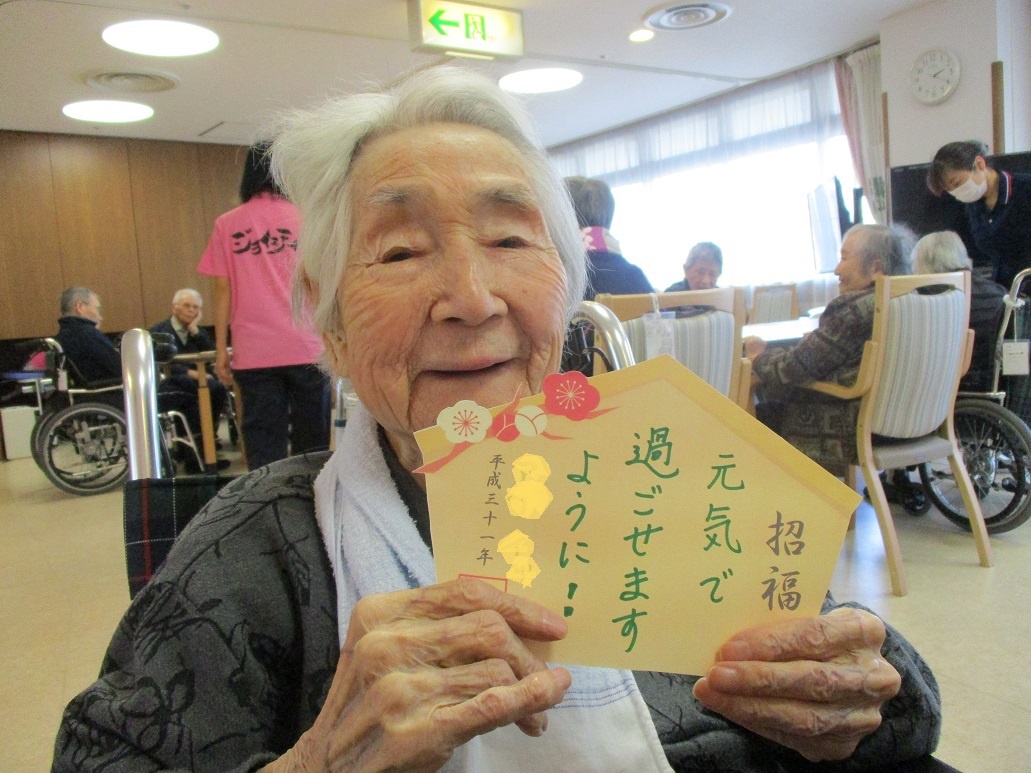 招福
元気で
過ごせます
ように!
平成三十一年